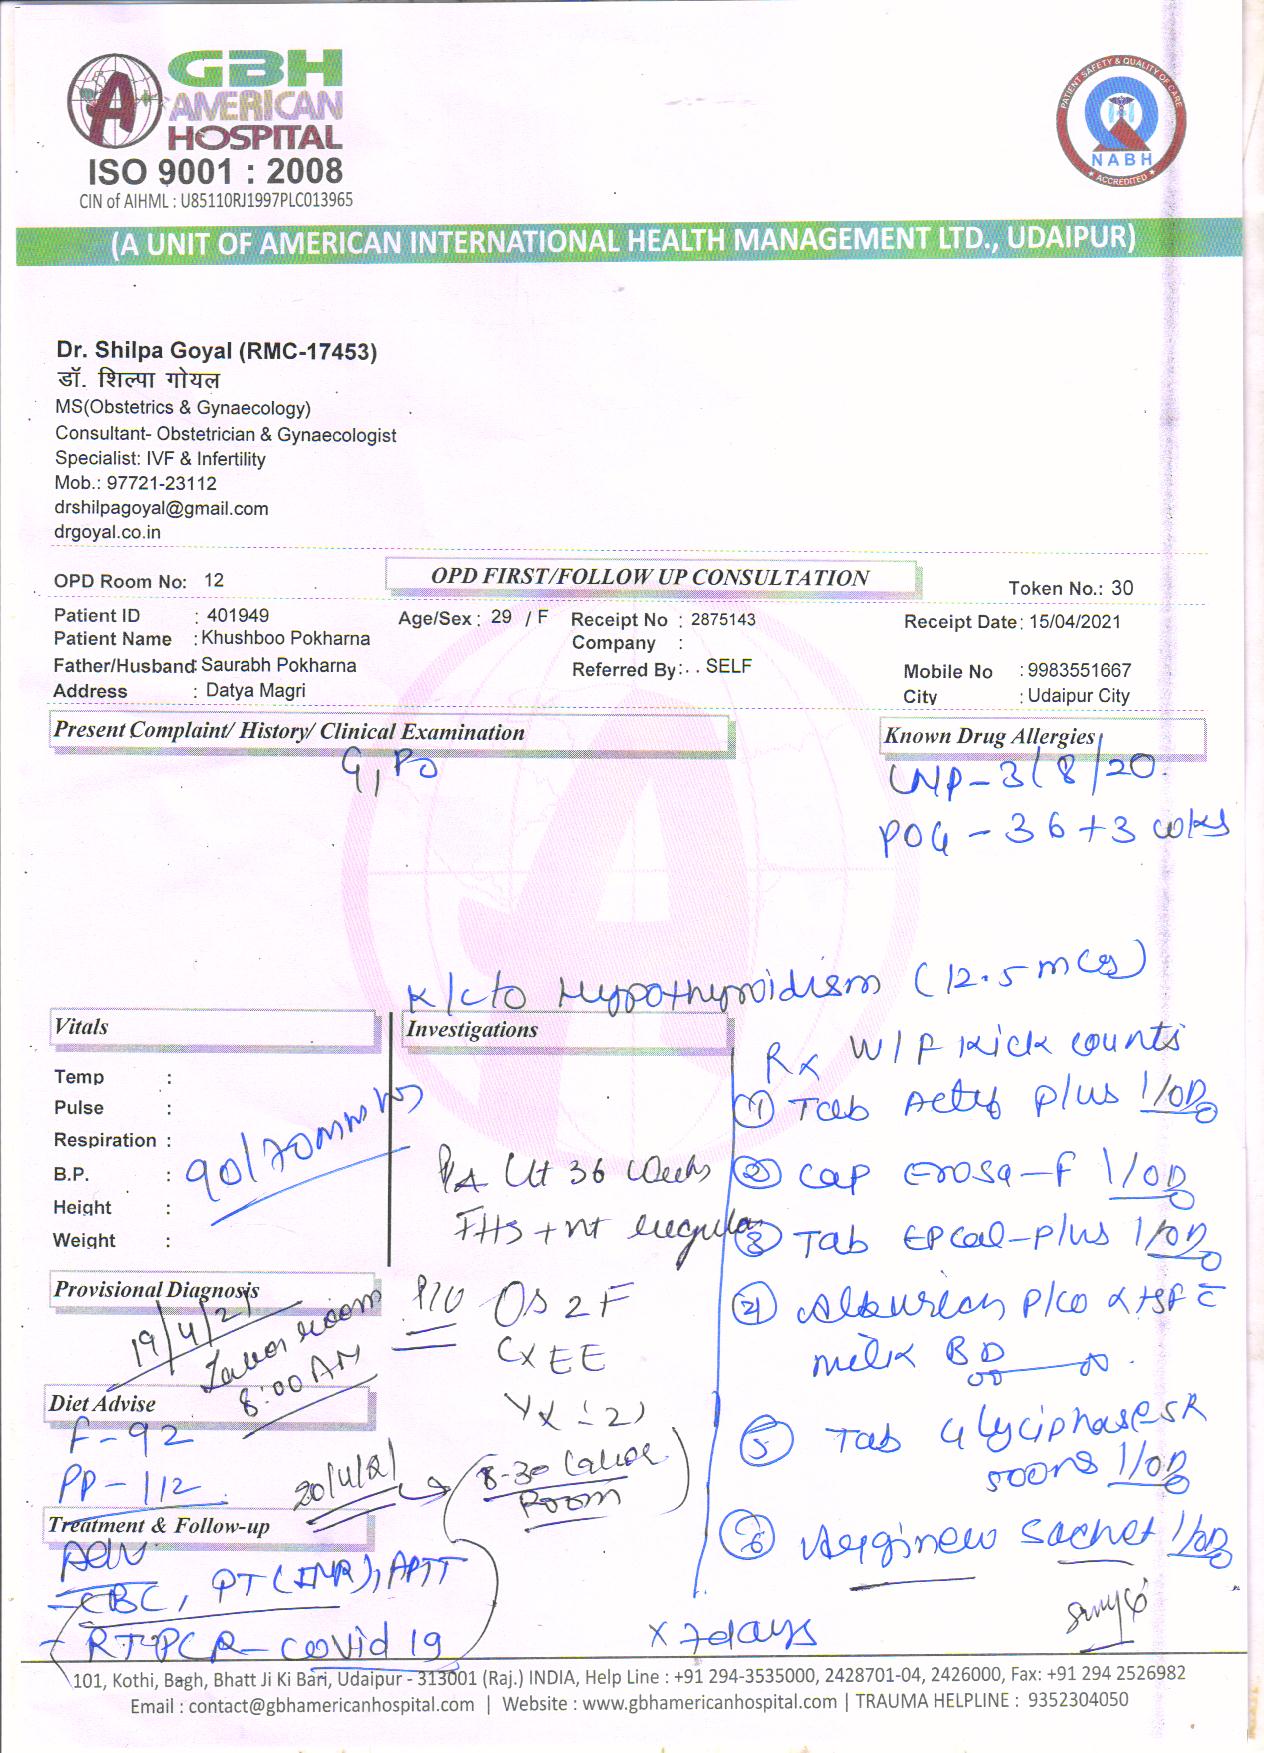 GBH
AMERICAN
HOSPITAL
ISO 9001 : 2008
CIN of AIHML : U85110RJ1997PLC013965
PATIENT SAFETY & QUALITY OF CARE
NABH
ACCREDITED
(A UNIT OF AMERICAN INTERNATIONAL HEALTH MANAGEMENT LTD., UDAIPUR)
Dr. Shilpa Goyal (RMC-17453)
डॉ. शिल्पा गोयल
MS(Obstetrics & Gynaecology)
Consultant- Obstetrician & Gynaecologist
Specialist: IVF & Infertility
Mob.: 97721-23112
drshilpagoyal@gmail.com
drgoyal.co.in
OPD Room No: 12 OPD FIRST/FOLLOW UP CONSULTATION Token No.: 30
Patient ID : 401949 Age/Sex : 29 / F Receipt No : 2875143 Receipt Date: 15/04/2021
Patient Name : Khushboo Pokharna Company :
Father/Husband: Saurabh Pokharna Referred By: . . SELF Mobile No : 9983551667
Address : Datya Magri City : Udaipur City
Present Complaint/ History/ Clinical Examination Known Drug Allergies
G1P0 LMP - 3/8/20
POG - 36+3 wks
K/c/o Hypothyroidism (12.5 mcg)
Vitals Investigations
Rx W/F Kick counts
Temp :
Pulse :
Respiration :
B.P. : 90/70mmHg
Height :
Weight :
P/A Ut 36 weeks
FHS +nt regular
P/V OS 2F
CX EE
① Tab Plus 1/OD
② Cap F 1/OD
③ Tab EPcal-Plus 1/OD
④ milk BD
⑤ Tab Glyciphase SR
500mg 1/OD
⑥ Arginew Sachet 1/OD
x 7days
Provisional Diagnosis
19/4/21
Labor room
8:00AM
Diet Advise
F-92
PP-112
20/4/21 8-30 Labor
Room
Treatment & Follow-up
Adv
- CBC, PT(INR), APTT
- RT-PCR- Covid 19
101, Kothi, Bagh, Bhatt Ji Ki Bari, Udaipur - 313001 (Raj.) INDIA, Help Line : +91 294-3535000, 2428701-04, 2426000, Fax: +91 294 2526982
Email : contact@gbhamericanhospital.com | Website : www.gbhamericanhospital.com | TRAUMA HELPLINE : 9352304050